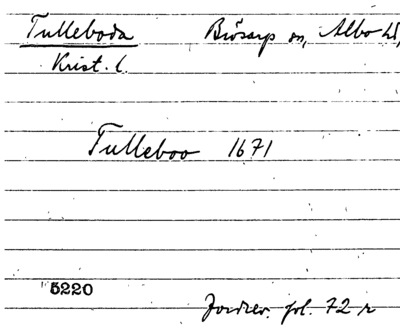 Tulleboda Brösarps sn, Albo hd,
Krist. l.
Tulleboo 1671
5220
Jordrev. fol. 72 r